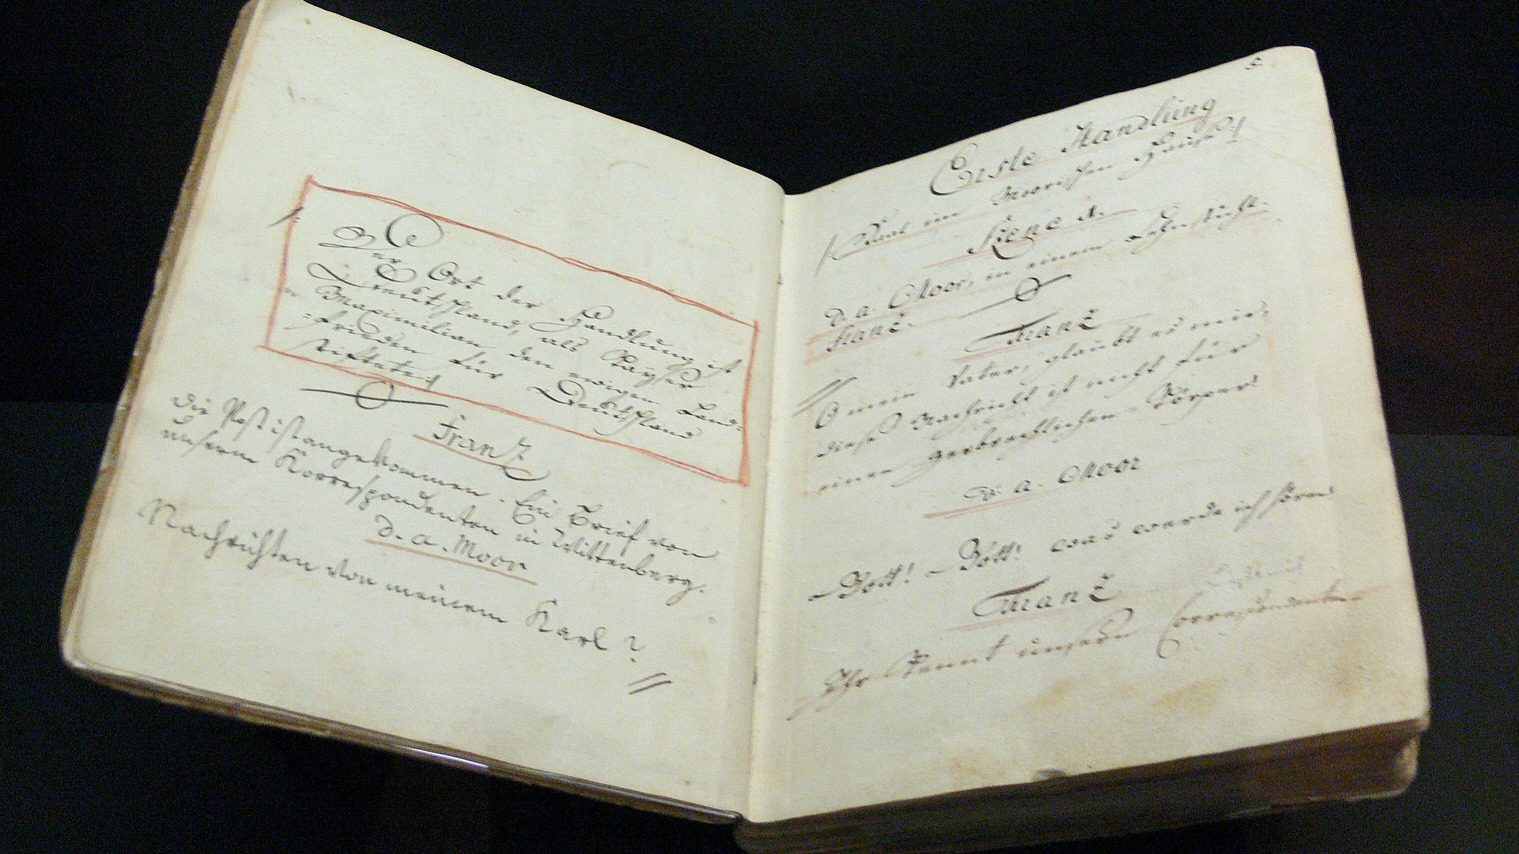 Der Ort der Handlung ist
Deutschland, als Kayser
Maximilian den ewigen Land-
-frieden für Deutschland
stiftete
Franz
die Post ist angekommen. Ein Brief von
unserm Korrespondenten in Wittenberg.
D. a. Moor
Nachrichten von meinem Karl?
5.
Erste Handlung
Saal im Moorischen Hause
Szene 1.
D. a. Moor, in einem Lehnstuhl.
Franz.
Franz
O mein Vater, glaubt es mir,
diese Nachricht ist nicht für
einen zerbrechlichen Körper!
D. a. Moor
Gott! Gott! was werde ich hören
Franz
Ihr kennt unsern Correspondenten